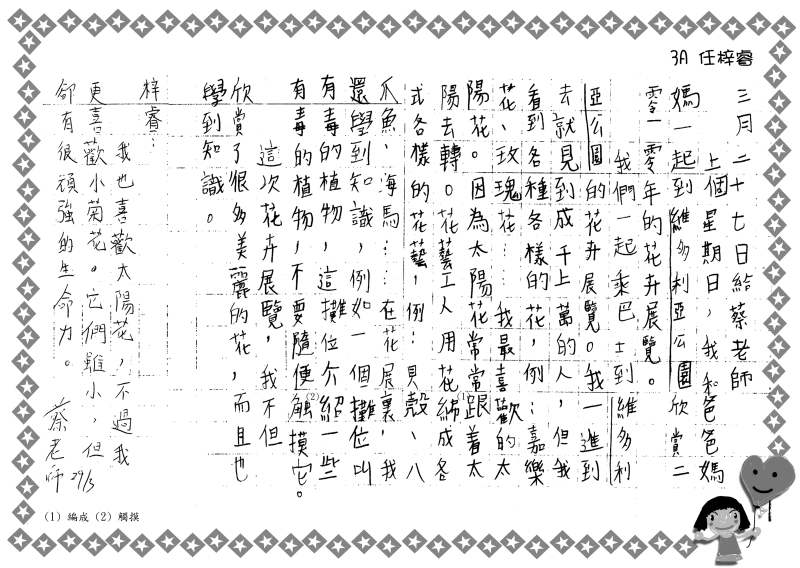 3A 任梓睿
三月二十七日給蔡老師
上個星期日，我和爸爸媽
媽一起到維多利亞公園欣賞二
零一零年的花卉展覽。
我們一起乘巴士到維多利
亞公園的花卉展覽。我一進到
去就見到成千上萬的人，但我
看到各種各樣的花，例：嘉樂
花、玫瑰花……我最喜歡的太
陽花。因為太陽花常常跟着太
陽去轉。花藝工人用花綿(1)成各
式各樣的花藝，例：貝殼、八
爪魚、海馬……在花展裏，我
還學到知識，例如一個攤位叫
有毒的植物，這攤位介紹一些
有毒的植物，不要隨便觸(2)摸它。
這次花卉展覽，我不但
欣賞了很多美麗的花，而且也
學到知識。
梓睿：
我也喜歡太陽花，不過我
更喜歡小菊花。它們雖小，但
卻有很頑強的生命力。
蔡老師 29/3
(1) 編成 (2) 觸摸